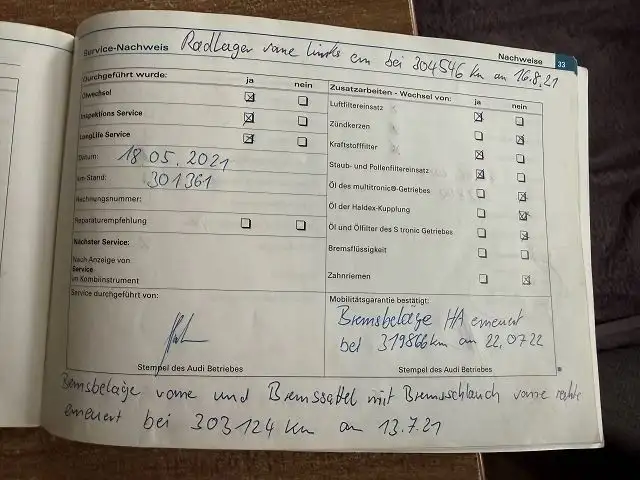 Service-Nachweis Radlager vorne links ern bei 304546 Km an 16.8.21
Nachweise 33
Durchgeführt wurde: ja nein
Ölwechsel
Inspektions Service
LongLife Service
Datum: 18 05. 2021
km-Stand: 301361
Rechnungsnummer:
Reparaturempfehlung
Nächster Service:
Nach Anzeige von
Service
im Kombiinstrument
Service durchgeführt von:
Stempel des Audi Betriebes
Zusatzarbeiten - Wechsel von: ja nein
Luftfiltereinsatz
Zündkerzen
Kraftstofffilter
Staub- und Pollenfiltereinsatz
Öl des multitronic®-Getriebes
Öl der Haldex-Kupplung
Öl und Ölfilter des S tronic Getriebes
Bremsflüssigkeit
Zahnriemen
Mobilitätsgarantie bestätigt:
Bremsbeläge HA erneuert
bei 319866km an 22.07.22
Stempel des Audi Betriebes
Bremsbeläge vorne und Bremssattel mit Bremsschlauch vorne rechte
erneuert bei 303124 Km an 13.7.21